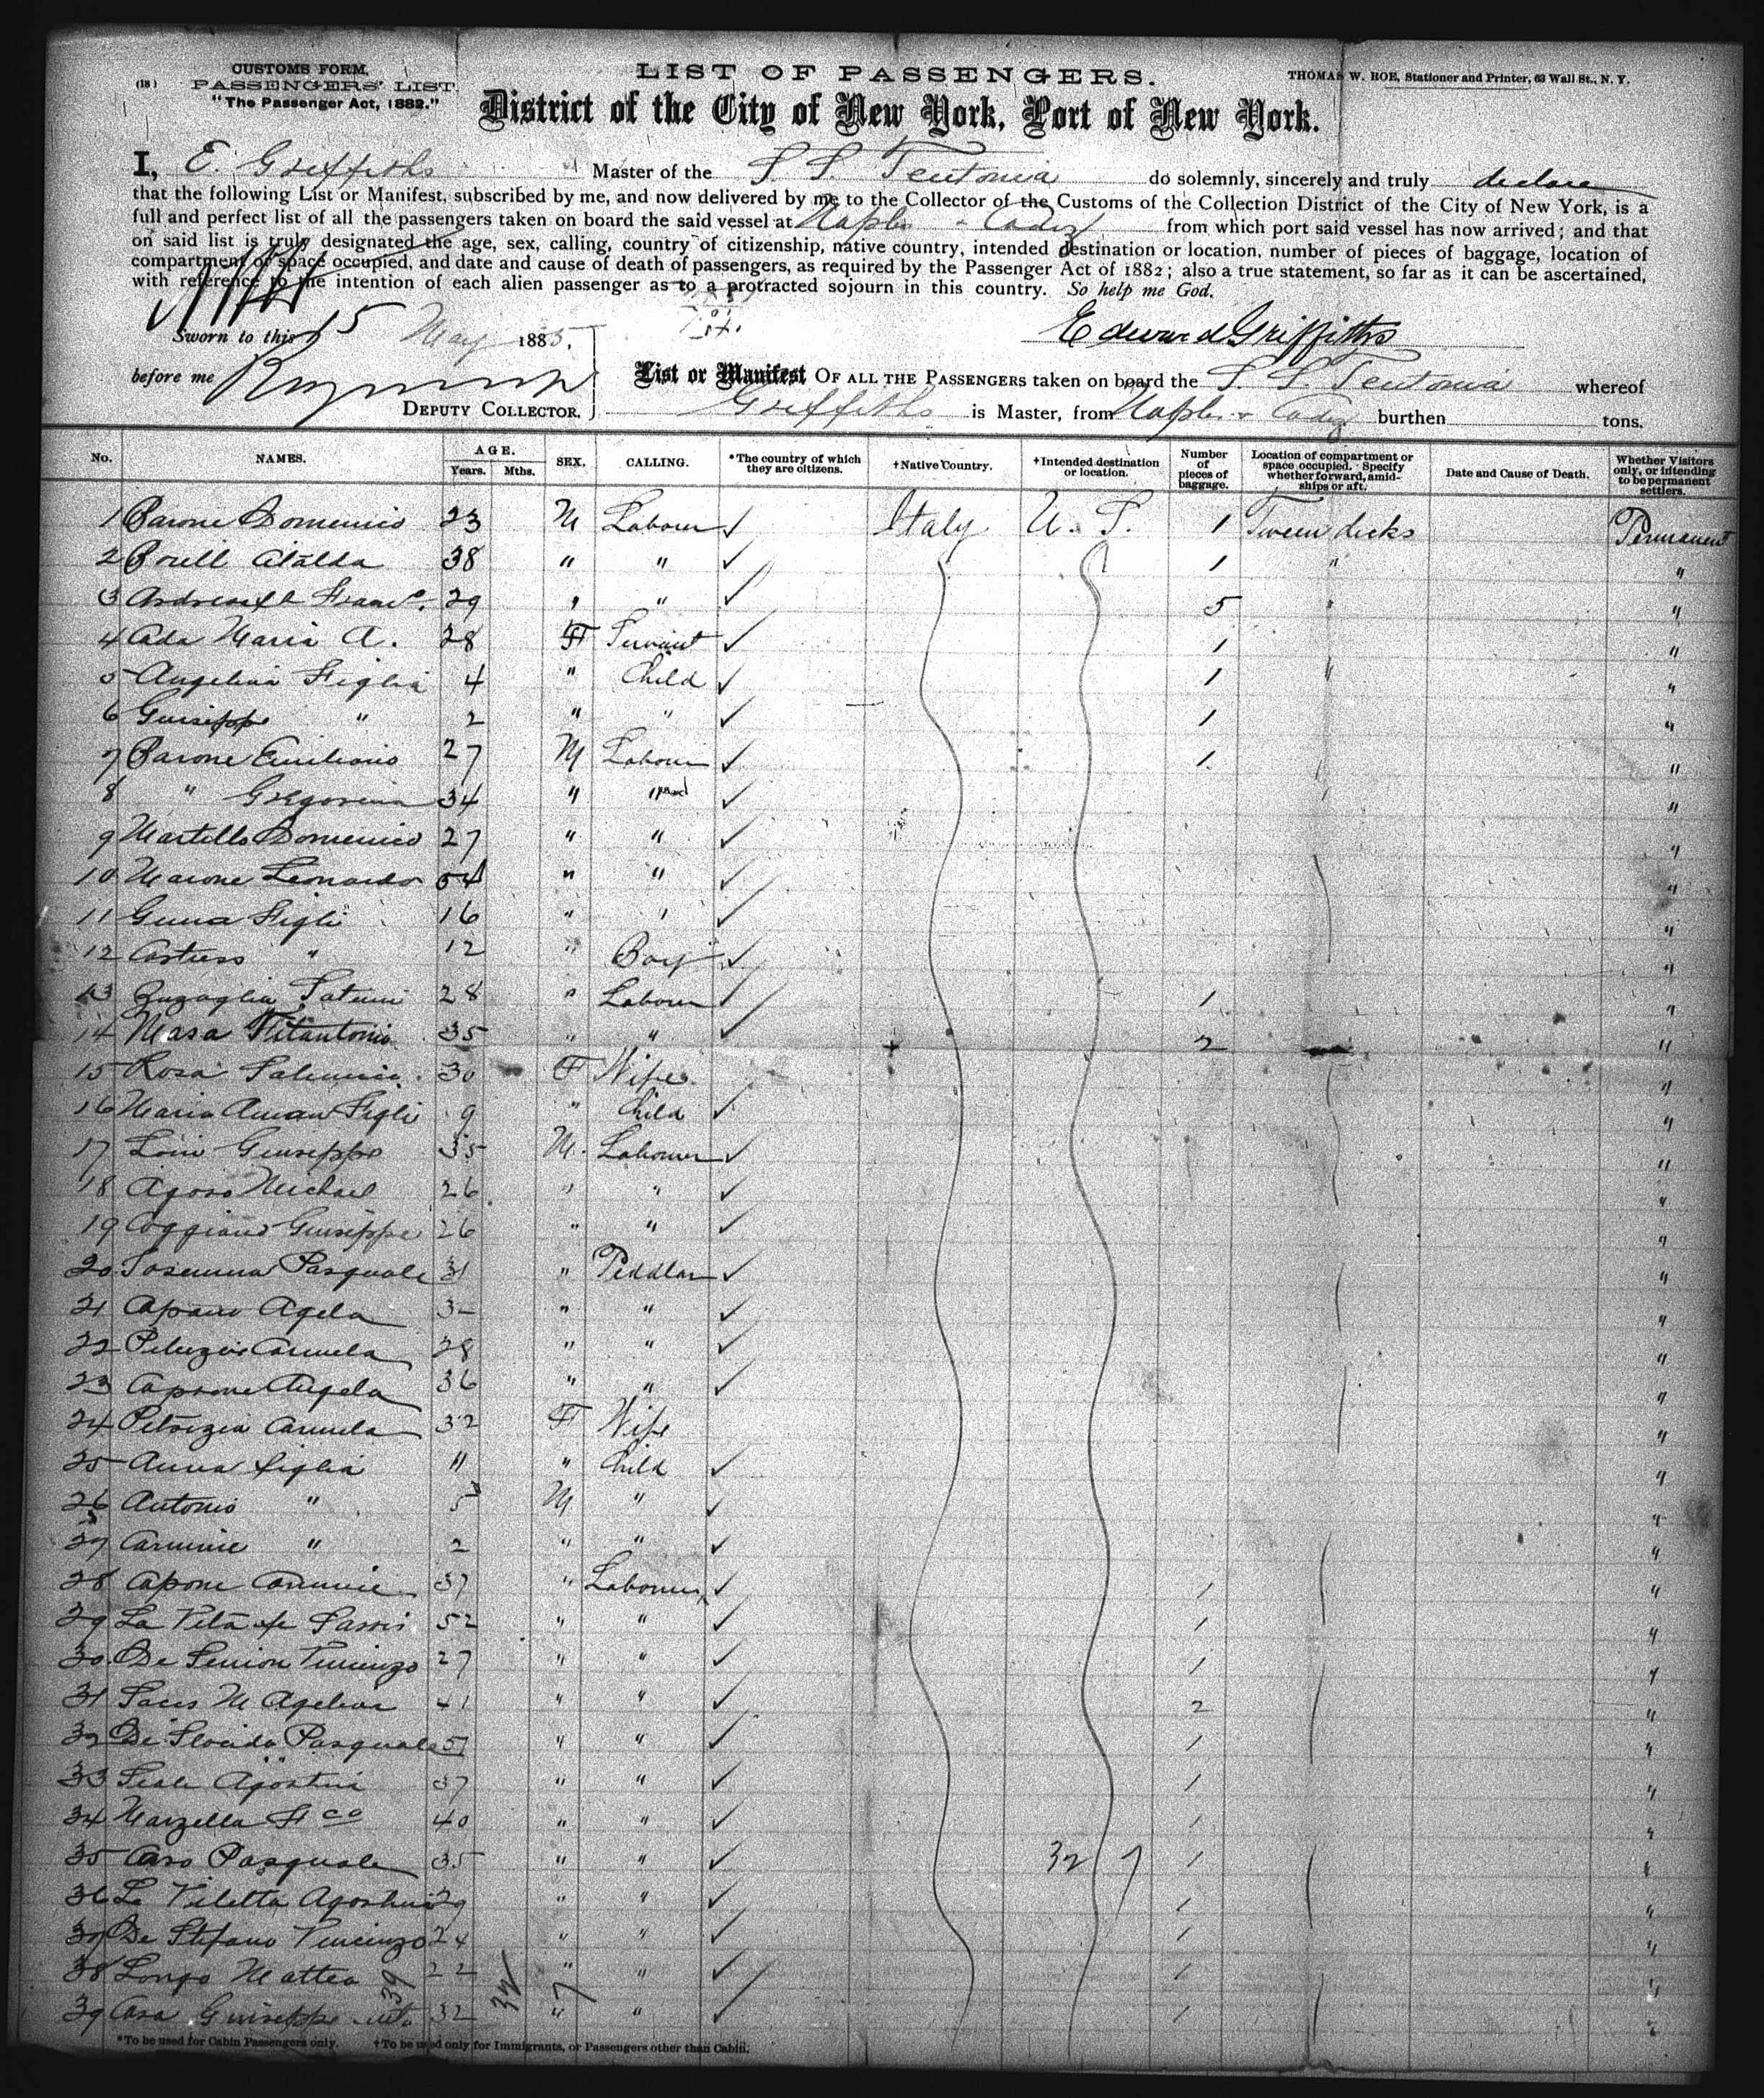 (18)
CUSTOMS FORM.
PASSENGERS' LIST.
"The Passenger Act, 1882."
LIST OF PASSENGERS.
THOMAS W. ROE, Stationer and Printer, 63 Wall St., N. Y.
District of the City of New York, Port of New York.
I, E. Griffiths Master of the S. S. Teutonia do solemnly, sincerely and truly declare
that the following List or Manifest, subscribed by me, and now delivered by me to the Collector of the Customs of the Collection District of the City of New York, is a
full and perfect list of all the passengers taken on board the said vessel at Naples & Cadiz from which port said vessel has now arrived; and that
on said list is truly designated the age, sex, calling, country of citizenship, native country, intended destination or location, number of pieces of baggage, location of
compartment or space occupied, and date and cause of death of passengers, as required by the Passenger Act of 1882; also a true statement, so far as it can be ascertained,
with reference to the intention of each alien passenger as to a protracted sojourn in this country. So help me God.
Sworn to this 15 May 1885,
Edward Griffiths
before me
DEPUTY COLLECTOR.
List or Manifest OF ALL THE PASSENGERS taken on board the S. S. Teutonia whereof
Griffiths is Master, from Naples & Cadiz burthen tons.
No. NAMES. AGE. Years. Mths. SEX. CALLING. *The country of which they are citizens. †Native Country. †Intended destination or location. Number of pieces of baggage. Location of compartment or space occupied. Specify whether forward, amidships or aft. Date and Cause of Death. Whether Visitors only, or intending to be permanent settlers.
1 Barone Domenico 23 M Labour ✓ Italy U. S. 1 Tween decks Permanent
2 38 " " ✓ 1 " "
3 29 " " ✓ 5 " "
4 Ada Maria A. 28 F Servant ✓ 1 "
5 Angelina Figlia 4 " Child ✓ 1 " "
6 Guiseppe " 2 " " ✓ 1 "
7 Barone Emiliano 27 M Labour ✓ 1 "
8 " 34 " " ✓ "
9 Martello Domenico 27 " " ✓ "
10 Marone Leonardo 54 " " ✓ "
11 Figli 16 " " ✓ "
12 " 12 " Boy ✓ "
13 28 " Labour ✓ 1 "
14 Masa Vitantonio 35 " " ✓ 2 "
15 Rosa 30 F Wife "
16 Maria Figli 9 " Child ✓ "
17 Guiseppe 35 M. Labourer ✓ "
18 Michael 26 " " ✓ "
19 Coggiano Guiseppe 26 " " ✓ "
20 Pasquale 31 " Peddlar ✓ "
21 Agela " " ✓ "
22 Carmela 28 " " ✓ "
23 Capione Angela 36 " " ✓ "
24 Petrizia Carmela 32 F Wife "
25 Anna figlia 11 " Child ✓ "
26 Antonio " 5 M " ✓ "
27 Carmine " 2 " " ✓ "
28 Capone Carmine 37 " Labourer ✓ 1 "
29 La 52 " " ✓ 1 "
30 De Vincenzo 27 " " ✓ 1 "
31 M 41 " " ✓ 2 "
32 De Pasquale 51 " " ✓ 1 "
33 Agostina 37 " " ✓ 1 "
34 Marzella Fco 40 " " ✓ 1 "
35 Caro Pasquale 35 " " ✓ 32 7 1 "
36 La Viletta 29 " " ✓ 1 "
37 De Stefano Vincenzo 24 " " ✓ 1 "
38 Longo Mattea 22 " " ✓ 1 "
39 Casa Guiseppe 32 " " ✓ 1 "
39 32 7
*To be used for Cabin Passengers only. †To be used only for Immigrants, or Passengers other than Cabin.